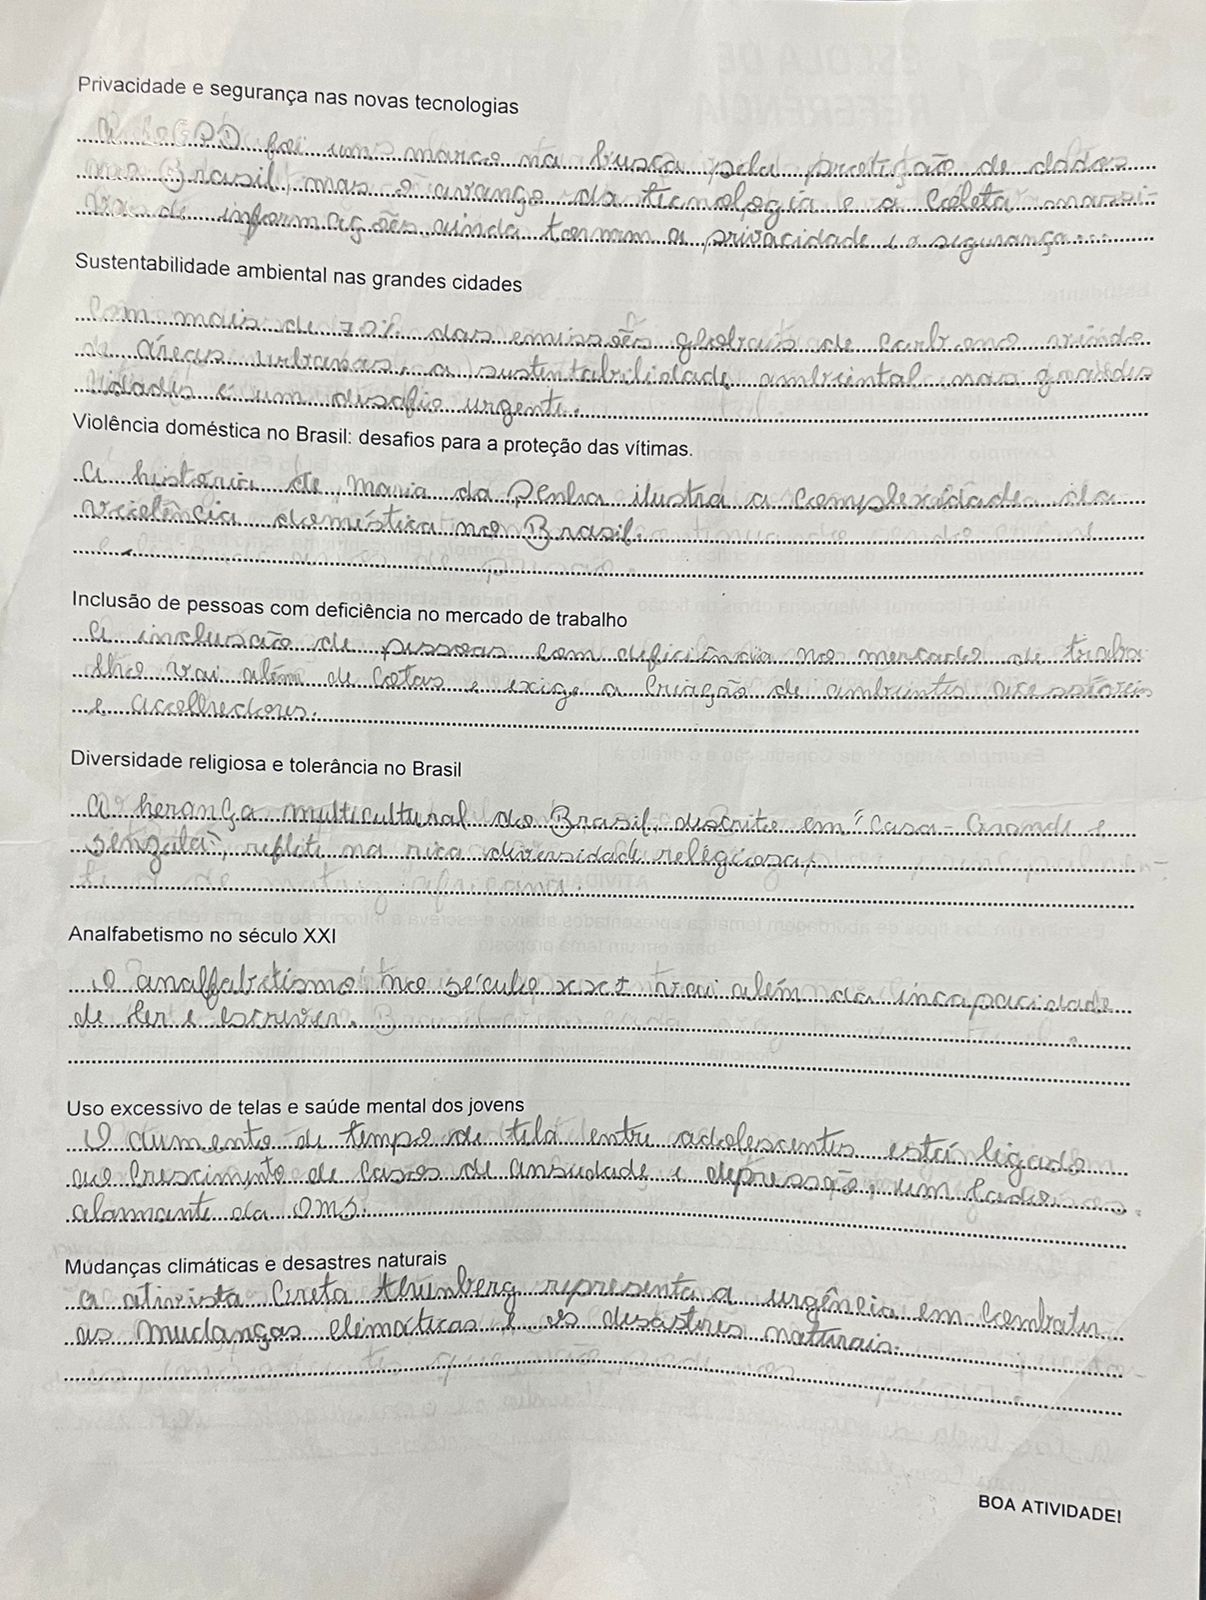 Privacidade e segurança nas novas tecnologias
A LGPD foi um marco na busca pela proteção de dados
no Brasil, mas o avanço da tecnologia e a coleta massi-
va de informações ainda tornam a privacidade e a segurança
Sustentabilidade ambiental nas grandes cidades
Com mais de 70% das emissões globais de carbono vindo
de áreas urbanas, a sustentabilidade ambiental nas grandes
cidades é um desafio urgente.
Violência doméstica no Brasil: desafios para a proteção das vítimas.
A história de Maria da Penha ilustra a complexidade da
violência doméstica no Brasil.
Inclusão de pessoas com deficiência no mercado de trabalho
A inclusão de pessoas com deficiência no mercado de traba
lho vai além de cotas e exige a criação de ambientes acessíveis
e acolhedores.
Diversidade religiosa e tolerância no Brasil
A herança multicultural do Brasil, descrita em "Casa-Grande e
Senzala", reflete na rica diversidade religiosa,
Analfabetismo no século XXI
O analfabetismo no século XXI vai além da incapacidade
de ler e escrever.
Uso excessivo de telas e saúde mental dos jovens
O aumento de tempo de tela entre adolescentes está ligado
ao crescimento de casos de ansiedade e depressão, um dado
alarmante da OMS.
Mudanças climáticas e desastres naturais
A ativista Greta Thunberg representa a urgência em combater
as mudanças climáticas e os desastres naturais.
BOA ATIVIDADE!